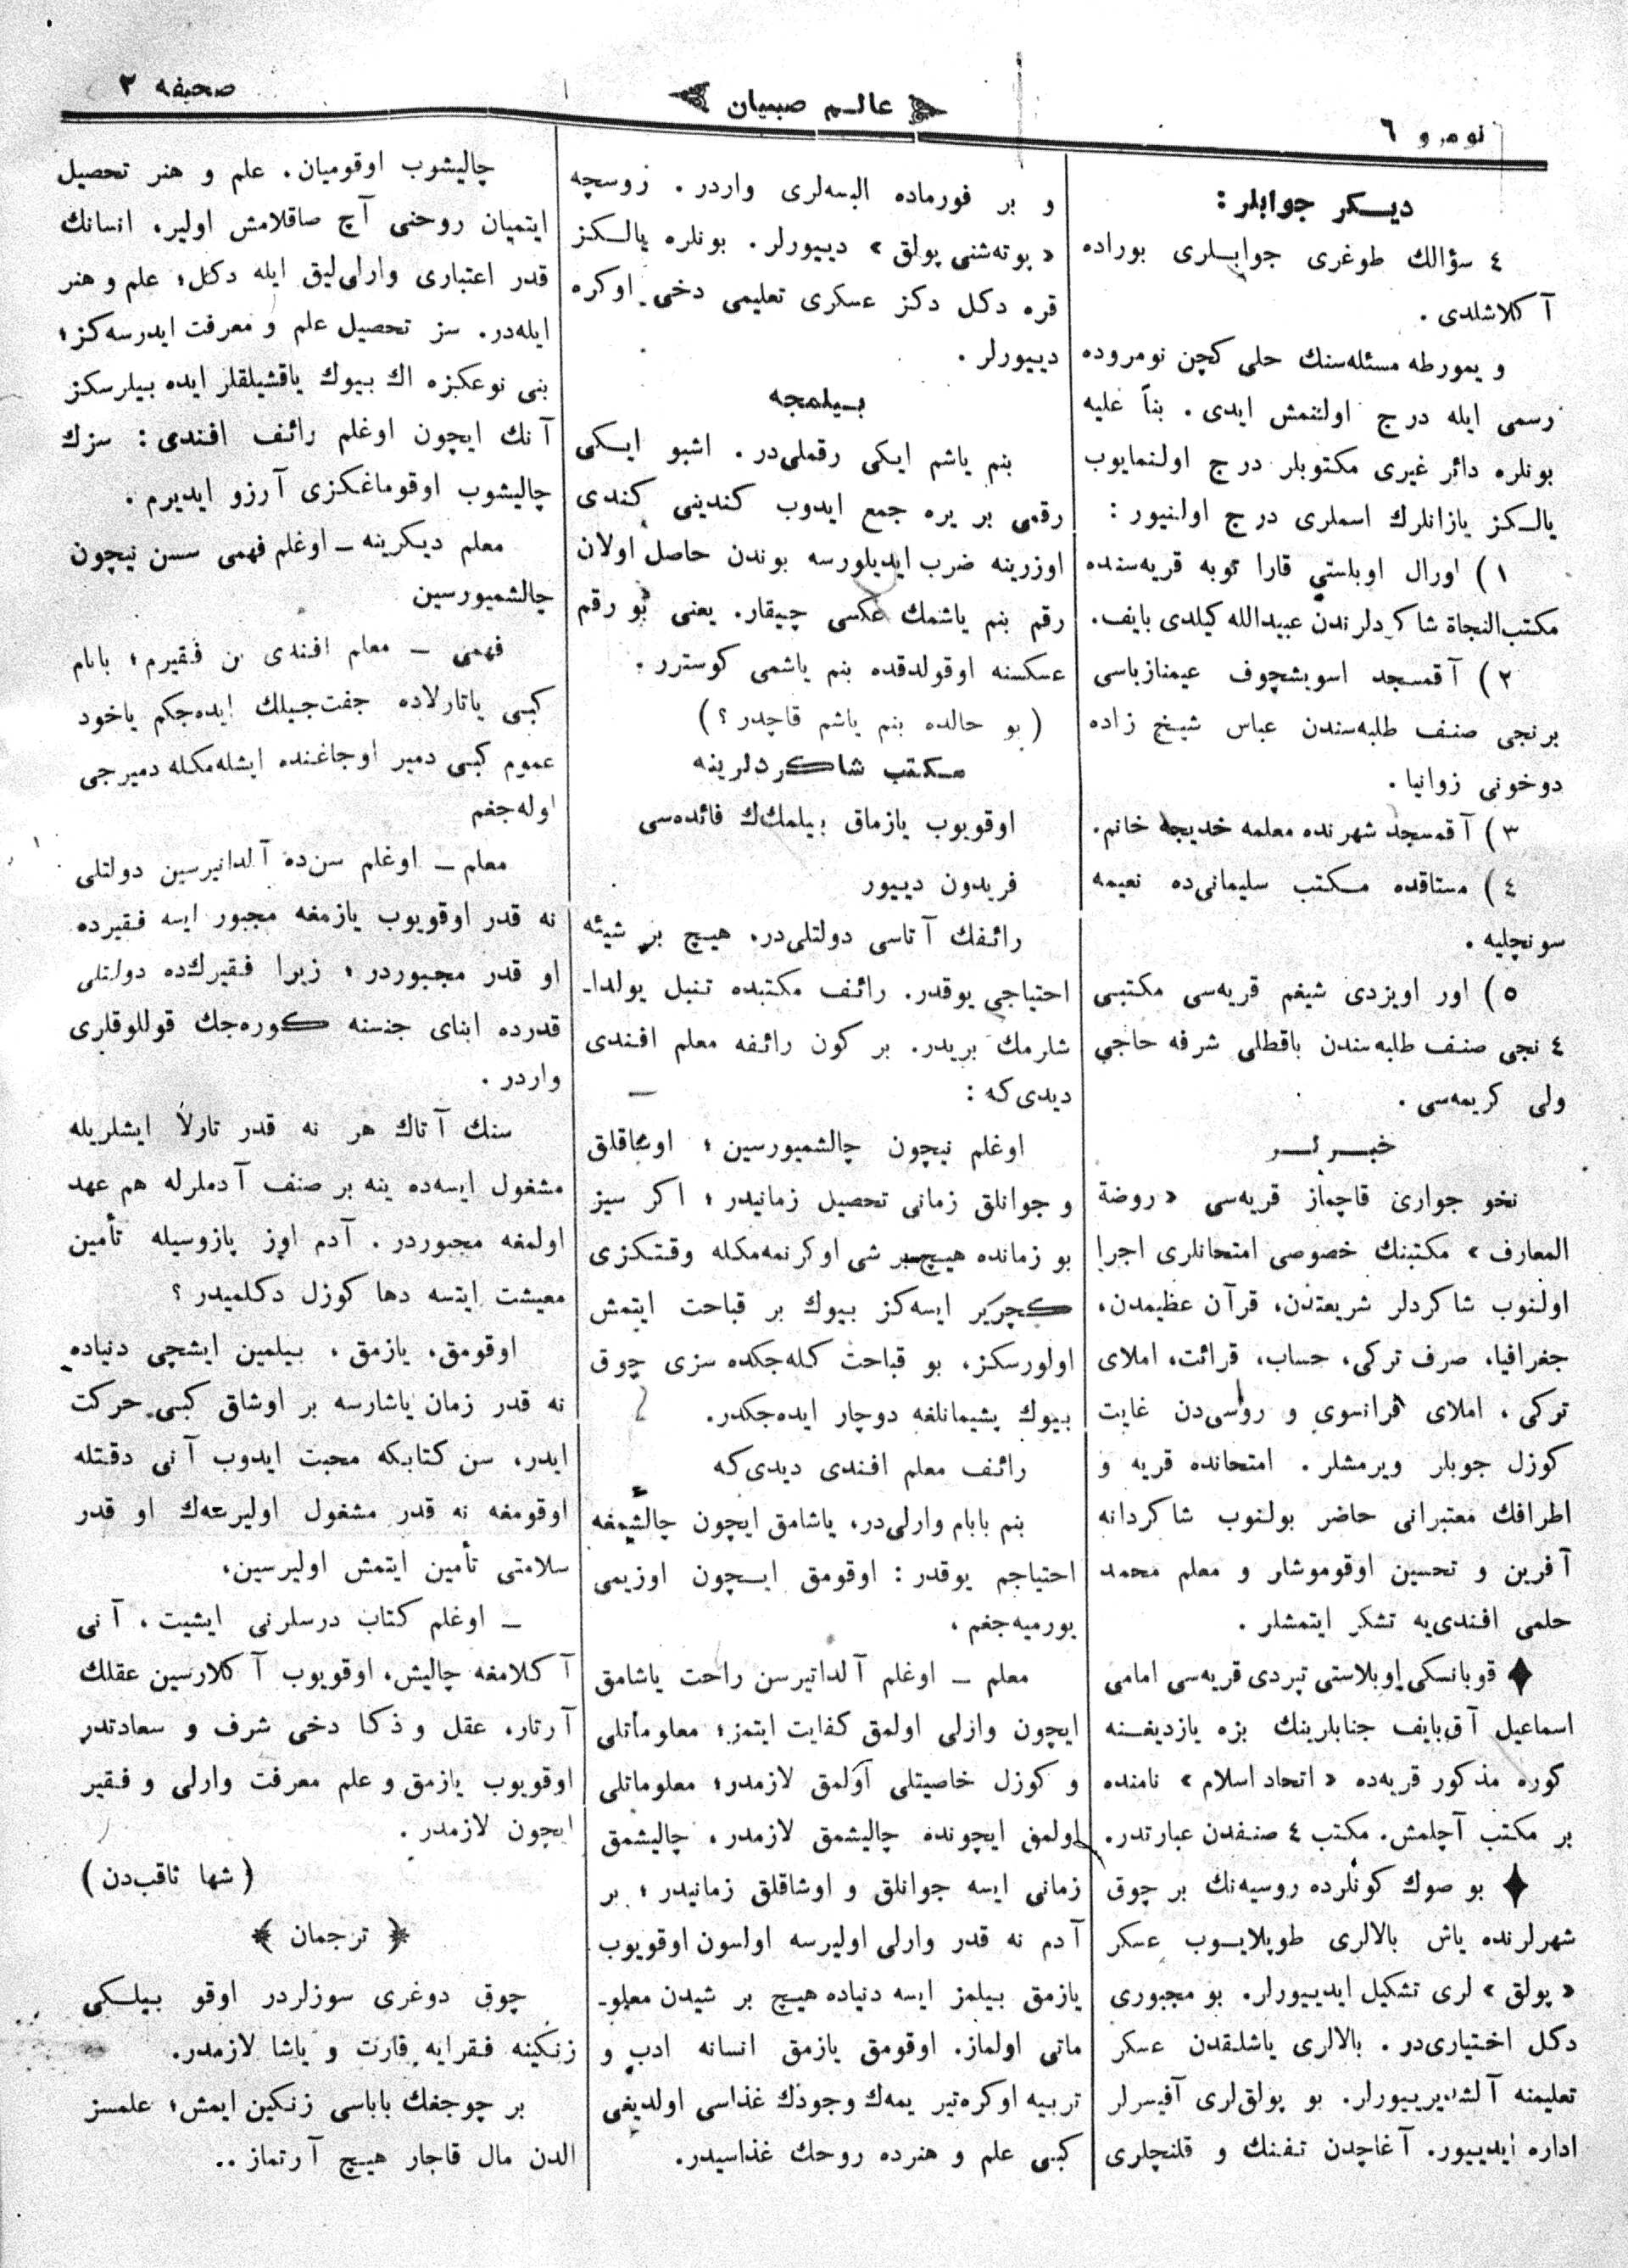 نومرو ٦
عالم صبيان
صحيفه ٣
ديكر جوابلر:
٤ سؤالك طوغرى جوابلرى بوراده
آكلاشلدى .
و يمورطه مسئله‌سنك حلى كچن نومروده
رسمى ايله درج اولنمش ايدى . بناً عليه
بونلره دائر غيرى مكتوبلر درج اولنمايوب
يالكز يازانلرك اسملرى درج اولنيور :
١) اورال اوبلستي قارا توبه قريه‌سنده
مكتب‌النجاة شاكردلرندن عبيدالله كيلدى بايف.
٢) آقمسجد اسويشچوف عيمنازياسى
برنجى صنف طلبه‌سندن عباس شيخ زاده
دوخونى زوانيا .
٣) آقمسجد شهرنده معلمه خديجه خانم.
٤) مستاقده مكتب سليمانى‌ده نعيمه
سونچليه .
٥) اور اويزدى شيغم قريه‌سى مكتبى
٤ نجى صنف طلبه‌سندن باقطلى شرفه حاجي
ولى كريمه‌سى .
خبرلر
نخو جوارى قاچماز قريه‌سى « روضة
المعارف » مكتبنك خصوصى امتحانلرى اجرا
اولنوب شاكردلر شريعتدن، قرآن عظيمدن،
جغرافيا، صرف تركى، حساب، قرائت، املاى
تركى ، املاى فرانسوى و روسى‌دن غايت
كوزل جوبلر ويرمشلر . امتحانده قريه و
اطرافك معتبرانى حاضر بولنوب شاكردانه
آفرين و تحسين اوقوموشلر و معلم محمد
حلمى افندى‌يه تشكر ايتمشلر .
قوبانسكى اوبلاستى تپردى قريه‌سى امامى
اسماعيل آق‌بايف جنابلرينك بزه يازديغنه
كوره مذكور قريه‌ده « اتحاد اسلام » نامنده
بر مكتب آچلمش. مكتب ٤ صنفدن عبارتدر.
بو صوك كونلرده روسيه‌نك بر چوق
شهرلرنده ياش بالالرى طوپلايوب عسكر
« پولق » لرى تشكيل ايدييورلر. بو مجبورى
دكل اختيارى‌در . بالالرى ياشلقدن عسكر
تعليمنه آلشديرييورلر. بو پولق‌لرى آفيسرلر
اداره ايدييور. آغاچدن تفنك و قلنچلرى
و بر فورماده البسه‌لرى واردر . روسچه
« بوته‌شنى پولق » دييورلر . بونلره يالكز
قره دكل دكز عسكرى تعليمى دخى اوكره
دييورلر .
بيلمجه
بنم ياشم ايكى رقملى‌در . اشبو ايكى
رقمى بر يره جمع ايدوب كندينى كندى
اوزرينه ضرب ايديلورسه بوندن حاصل اولان
رقم بنم ياشمك عكسى چيقار. يعنى بو رقم
عكسنه اوقولدقده بنم ياشمى كوسترر .
( بو حالده بنم ياشم قاچدر ؟ )
مكتب شاكردلرينه
اوقويوب يازماق بيلمك‌ك فائده‌سى
فريدون دييور
رائفك آتاسى دولتلى‌در. هيچ بر شيئه
احتياجى يوقدر. رائف مكتبده تنبل يولدا-
شلرمك بريدر. بر كون رائفه معلم افندى
ديدى‌كه :
اوغلم نيچون چالشميورسين ؛ اوشاقلق
و جوانلق زمانى تحصيل زمانيدر ؛ اكر سيز
بو زمانده هيچ‌بر شى اوكرنمه‌مكله وقتكزى
كچرير ايسه‌كز بيوك بر قباحت ايتمش
اولورسكز، بو قباحت كله‌جكده سزى چوق
بيوك پشيمانلغه دوچار ايده‌جكدر.
رائف معلم افندى ديدى‌كه
بنم بابام وارلى‌در، ياشامق ايچون چالشمغه
احتياجم يوقدر : اوقومق ايچون اوزيمى
يورميه‌جغم .
معلم — اوغلم آلداتيرسن راحت ياشامق
ايچون وارلى اولمق كفايت ايتمز؛ معلوماتلى
و كوزل خاصيتلى اولمق لازمدر؛ معلوماتلى
اولمق ايچونده چاليشمق لازمدر، چاليشمق
زمانى ايسه جوانلق و اوشاقلق زمانيدر ؛ بر
آدم نه قدر وارلى اوليرسه اولسون اوقويوب
يازمق بيلمز ايسه دنياده هيچ بر شيدن معلو-
ماتى اولماز. اوقومق يازمق انسانه ادب و
تربيه اوكره‌تير يمه‌ك وجودك غذاسى اولديغى
كبى علم و هنرده روحك غذاسيدر.
چاليشوب اوقوميان. علم و هنر تحصيل
ايتميان روحنى آچ صاقلامش اولير. انسانك
قدر اعتبارى وارلى‌ليق ايله دكل؛ علم و هنر
ايله‌در. سز تحصيل علم و معرفت ايدرسه‌كز؛
بنى نوعكزه اك بيوك ياقشيلقلر ايده بيلرسكز
آنك ايچون اوغلم رائف افندى : سزك
چاليشوب اوقوماغكزى آرزو ايديرم .
معلم ديكرينه — اوغلم فهمى سن نيچون
چالشميورسين
فهمى — معلم افندى بن فقيرم ؛ بابام
كبى ياتارلاده جفت‌جيلك ايده‌جكم ياخود
عموم كبى دمير اوجاغنده ايشله‌مكله دميرجى
اوله‌جغم
معلم — اوغلم سن‌ده آلدانيرسين دولتلى
نه قدر اوقويوب يازمغه مجبور ايسه فقيرده
او قدر مجبوردر ؛ زيرا فقيرك‌ده دولتلى
قدرده ابناى جنسنه كوره‌جك قوللوقلرى
واردر .
سنك آتاك هر نه قدر تارلا ايشلريله
مشغول ايسه‌ده ينه بر صنف آدملرله هم عهد
اولمغه مجبوردر . آدم اوز پازوسيله تأمين
معيشت ايتسه دها كوزل دكلميدر ؟
اوقومق، يازمق ، بيلمين ايشچى دنياده
نه قدر زمان ياشارسه بر اوشاق كبى حركت
ايدر، سن كتابكه محبت ايدوب آنى دقتله
اوقومغه نه قدر مشغول اوليرسه‌ك او قدر
سلامتى تأمين ايتمش اوليرسين،
— اوغلم كتاب درسلرنى ايشيت ، آنى
آكلامغه چاليش، اوقويوب آكلارسين عقلك
آرتار، عقل و ذكا دخى شرف و سعادتدر
اوقويوب يازمق و علم معرفت وارلى و فقير
ايچون لازمدر .
( شها ثاقب‌دن )
﴿ ترجمان ﴾
چوق دوغرى سوزلردر اوقو بيلكى
زنكينه فقرايه قارت و ياشا لازمدر.
بر چوجغك باباسى زنكين ايمش؛ علمسز
الدن مال قاچار هيچ آرتماز ..